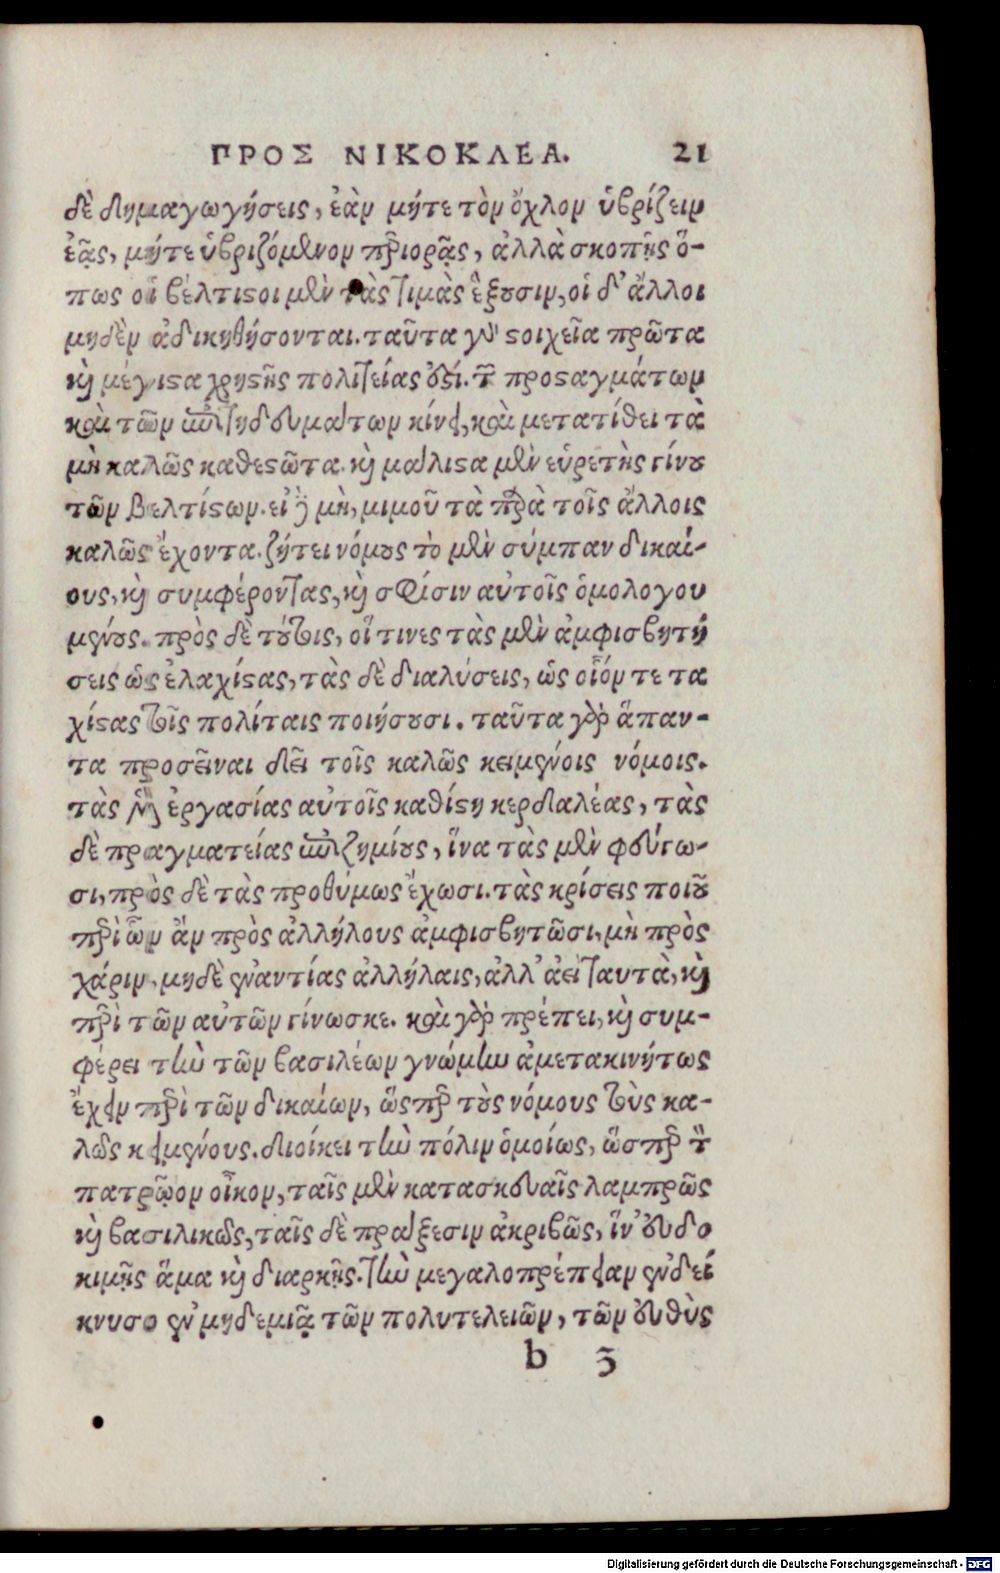 ΠΡΟΣ ΝΙΚΟΚΛΕΑ. 21
δὲ δημαγωγήσεις, ἐὰν μήτε τὸν ὄχλον ὑβρίζειν
ἐᾷς, μήτε ὑβριζόμενον περιορᾷς, ἀλλὰ σκοπῇς ὅ-
πως οἱ βέλτιστοι μὲν τὰς τιμὰς ἕξουσιν, οἱ δ' ἄλλοι
μηδὲν ἀδικηθήσονται. ταῦτα γὰρ στοιχεῖα πρῶτα
καὶ μέγιστα χρηστῆς πολιτείας ἐστί. τῶν προσταγμάτων
καὶ τῶν ἐπιτηδευμάτων κίνει, καὶ μετατίθει τὰ
μὴ καλῶς καθεστῶτα. καὶ μάλιστα μὲν εὑρετὴς γίνου
τῶν βελτίστων. εἰ δὲ μὴ, μιμοῦ τὰ παρὰ τοῖς ἄλλοις
καλῶς ἔχοντα. ζήτει νόμους τὸ μὲν σύμπαν δικαί-
ους, καὶ συμφέροντας, καὶ σφίσιν αὐτοῖς ὁμολογου
μένους. πρὸς δὲ τούτοις, οἵ τινες τὰς μὲν ἀμφισβητή
σεις ὡς ἐλαχίστας, τὰς δὲ διαλύσεις, ὡς οἷόν τε τα
χίστας τοῖς πολίταις ποιήσουσι. ταῦτα γὰρ ἅπαν-
τα προσεῖναι δεῖ τοῖς καλῶς κειμένοις νόμοις.
τὰς μὲν ἐργασίας αὐτοῖς καθίστη κερδαλέας, τὰς
δὲ πραγματείας ἐπιζημίους, ἵνα τὰς μὲν φεύγω-
σι, πρὸς δὲ τὰς προθύμως ἔχωσι. τὰς κρίσεις ποιοῦ
περὶ ὧν ἂν πρὸς ἀλλήλους ἀμφισβητῶσι, μὴ πρὸς
χάριν, μηδὲ ἐναντίας ἀλλήλαις, ἀλλ' ἀεὶ ταυτὰ, καὶ
περὶ τῶν αὐτῶν γίνωσκε. καὶ γὰρ πρέπει, καὶ συμ-
φέρει τὴν τῶν βασιλέων γνώμην ἀμετακινήτως
ἔχειν περὶ τῶν δικαίων, ὥσπερ τοὺς νόμους τοὺς κα-
λῶς κειμένους. διοίκει τὴν πόλιν ὁμοίως, ὥσπερ τὸν
πατρῷον οἶκον, ταῖς μὲν κατασκευαῖς λαμπρῶς
καὶ βασιλικῶς, ταῖς δὲ πράξεσιν ἀκριβῶς, ἵν' εὐδο
κιμῇς ἅμα καὶ διαρκῇς. τὴν μεγαλοπρέπειαν ἐνδεί
κνυσο ἐν μηδεμιᾷ τῶν πολυτελειῶν, τῶν εὐθὺς
b 3
Digitalisierung gefördert durch die Deutsche Forschungsgemeinschaft - DFG